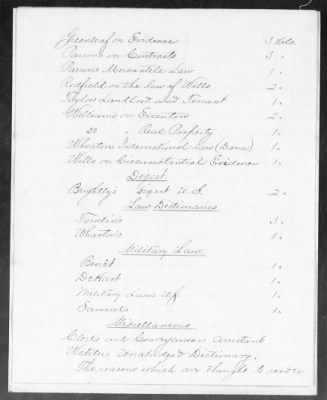 Greenleaf on Evidence 3 Vols.
Parsons on Contracts 3 "
Parsons Mercantile Law 1 "
Redfield on the law of Wills 2 "
Taylors Landlord and Tenant 1 "
Williams on Executors 2 "
do " Real Property 1 "
Wheaton's International Law (Dana) 1 "
Wills on Circumstantial Evidence 1 "
Digest
Brightly's Digest U.S. 2 "
Law Dictionaries
Tomlin's 3 "
Wharton's 1 "
Military Law
Benét 1 "
DeHart 1 "
Military Laws U.S. 1 "
Samuel's 1 "
Miscellaneous
Clerk's and Conveyancers Assistant
Webster's Unabridged Dictionary.
The reasons which are thought to render